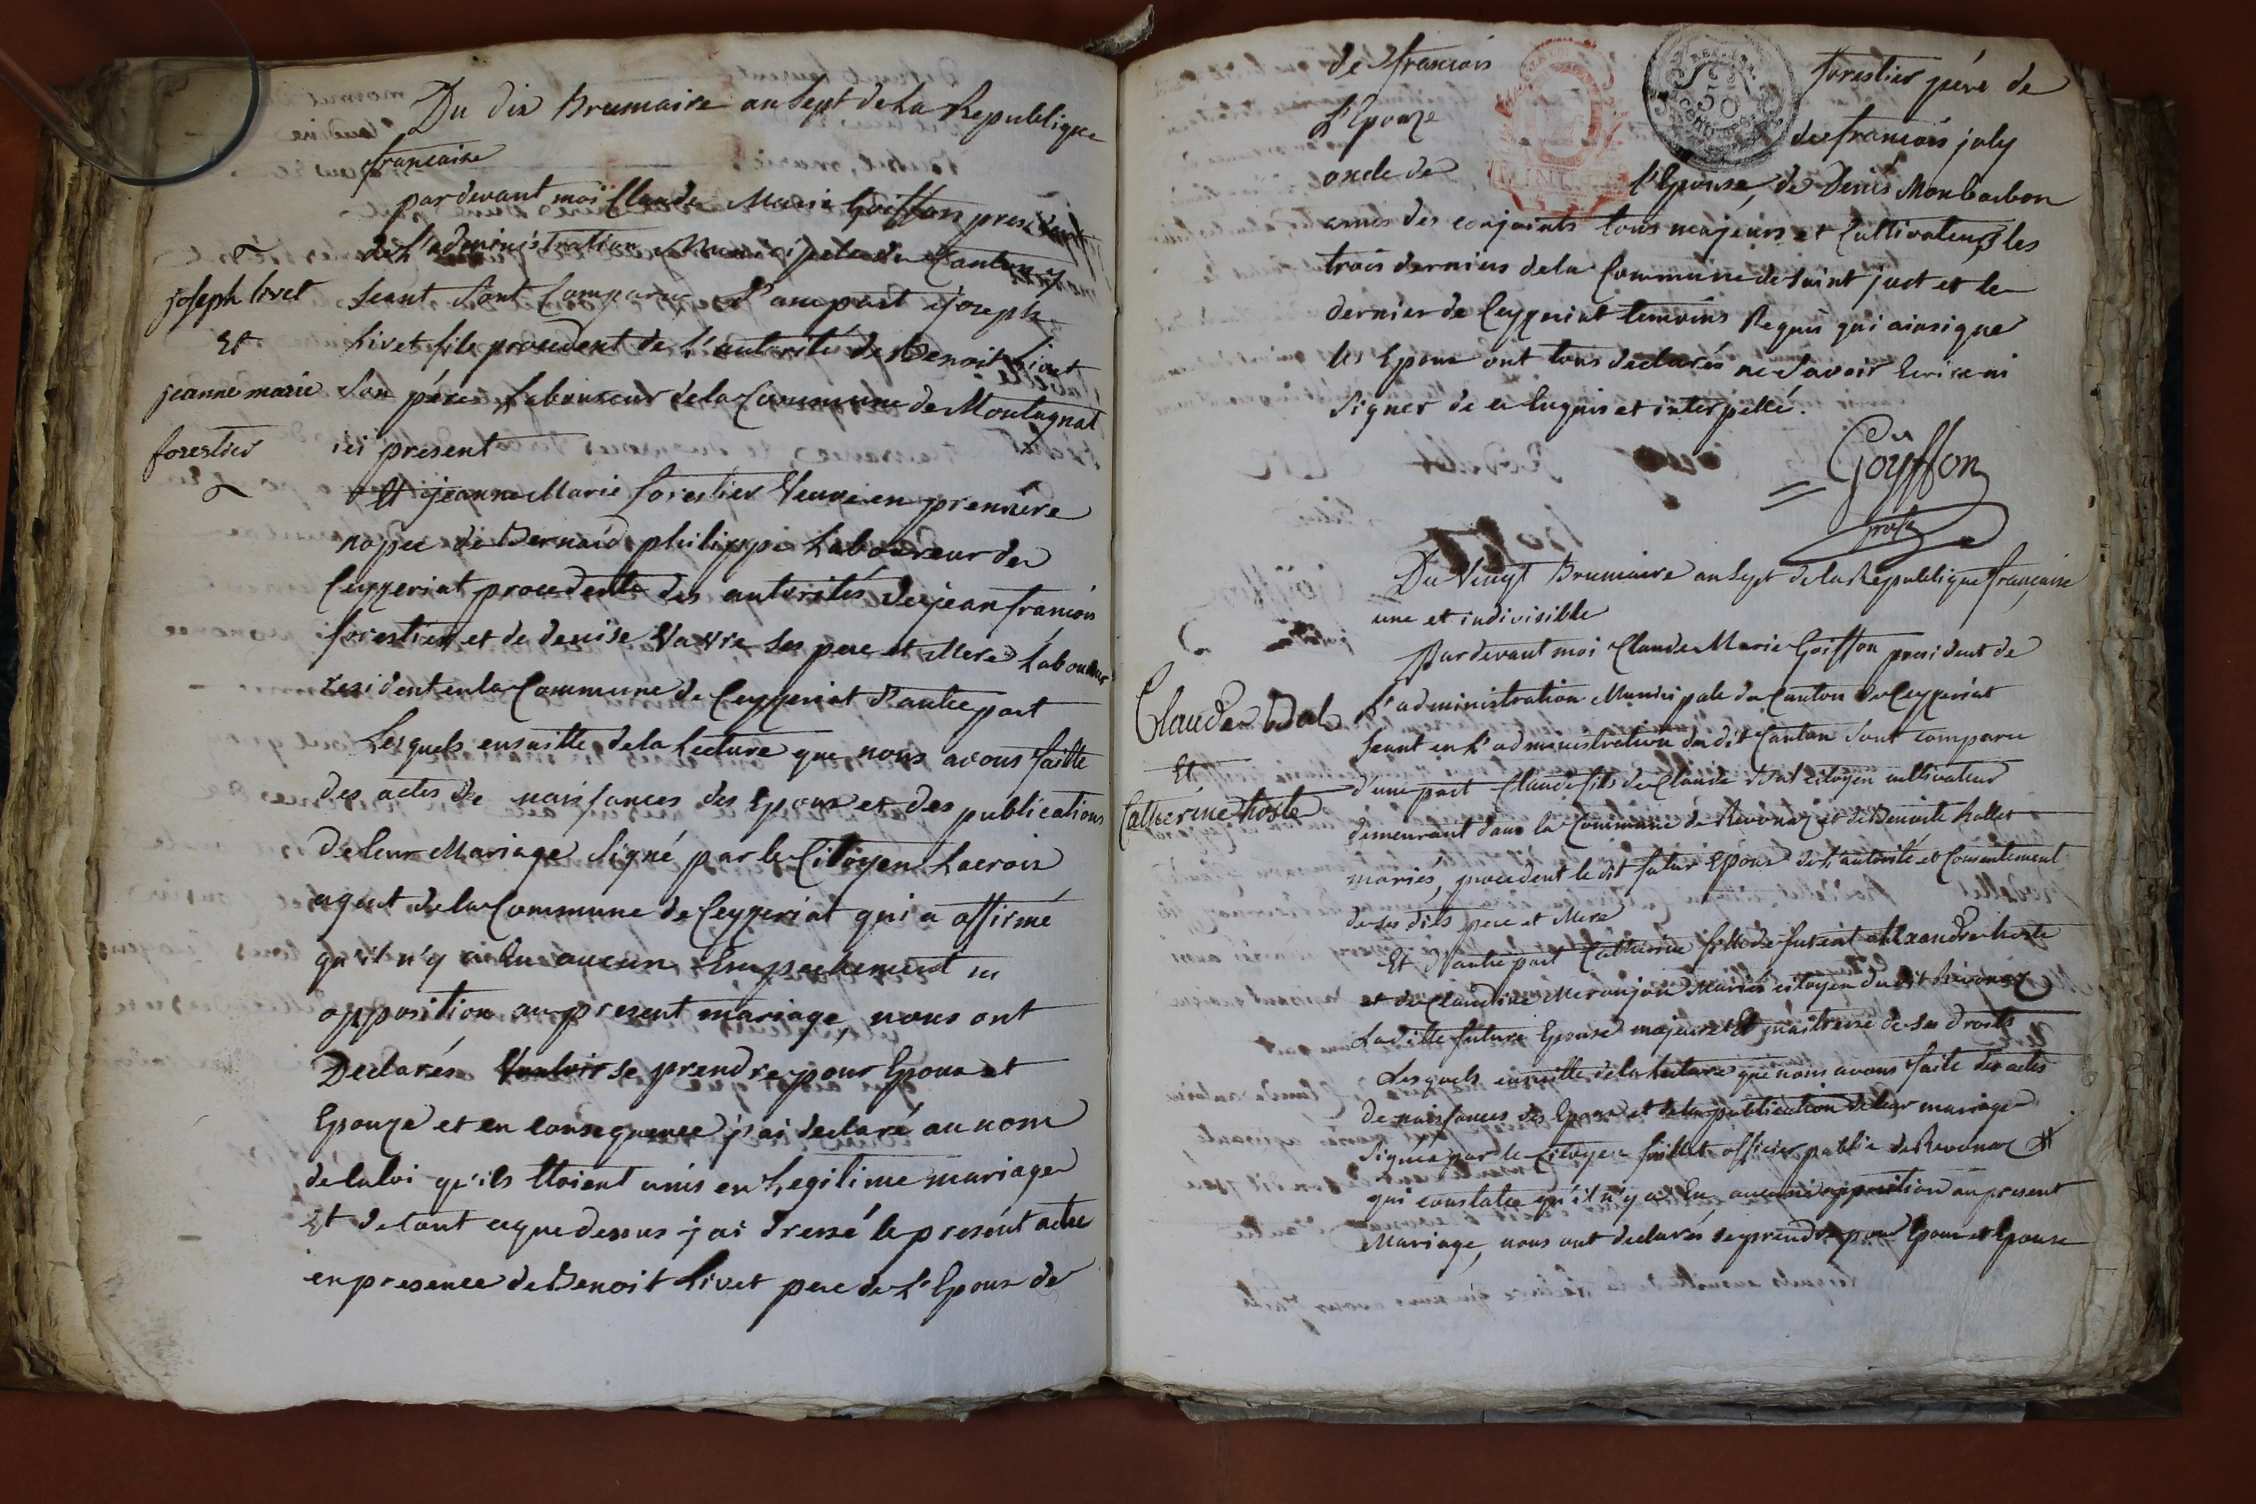 Du dix Brumaire an Sept de La Republique
francaise
par devant moi Claude Marie Goiffon president
de L'administration Municipale du Canton y
Seant Sont Comparus D'une part joseph
Livet fils procedent de L'autorité de Benoit Livet
Son pére Laboureur de la Commune de Montagnat
ici présent
joseph livet
Et
jeanne marie
forestier
Et jeanne Marie forestier Veuve en premiére
nopce de Bernard philippe Laboureur de
Ceyzeriat procedente des autorités de jean francois
forestier et de denise Vavre ses pere et Mere Laboureur
resident en la Commune de Ceyzeriat d'autre part
Lesquels ensuitte de la Lecture que nous avons faitte
des actes de naissances des Epoux et des publications
de leur Mariage Signé par le Citoyen Lacroix
agent de la Commune de Ceyzeriat qui a affirmé
qu'il n'y a Eu aucun Empechement ni
opposition au present mariage, nous ont
Declarés Vouloir se prendre pour Epoux et
Epouze et en consequence j'ai declaré au nom
de la loi qu'ils Etoient unis en Legitime mariage
Et de tout ce que dessus j'ai dressé le présent acte
en presence de Benoit Livet pere de L'Epoux de
de francois forestier pére de
L'Epouze de francois joly
oncle de l'Epouse, de Denis Monbarbon
amis des conjoints tous majeurs et Cultivateurs les
trois derniers de la Commune de Saint just et le
dernier de Ceyzeriat temoins Requis qui ainsi que
les Epoux ont tous declarés ne Savoir Ecrire ni
Signer de ce Enquis et interpellé.
Goyffon
Du Vingt Brumaire an Sept de la Republique francaise
une et indivisible
Par devant moi Claude Marie Goiffon president de
L'administration Municipale du Canton de Ceyzeriat
Seant en L'administration du dit Canton Sont comparu
d'une part Claude fils de Claude citoyen cultivateur
demeurant dans la Commune de Revonaz et de Benoite Rollet
mariés, procedent le dit futur Epoux de L'autorité et Consentement
de ses dits pere et Mere
Claude
Et
Catherine hoste
Et D'autre part Catherine fille de furent alexandre hoste
et de Claudine Meronjon Mariés citoyen du dit Revonaz
La ditte future Epouse majeure Et maitresse de Ses droits
Lesquels ensuitte de la Lecture que nous avons faite des actes
de naissances des Epoux et de la publication de leur mariage
Signée par le Citoyen officier public de Revonaz
qui constate qu'il n'y a Eu aucune opposition au present
Mariage, nous ont declarés se prendre pour Epoux et Epouse